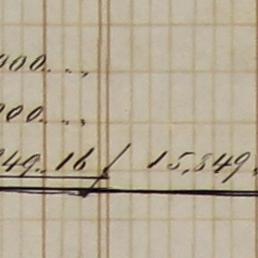 000. „
000. „
849. 16 / 15,849.